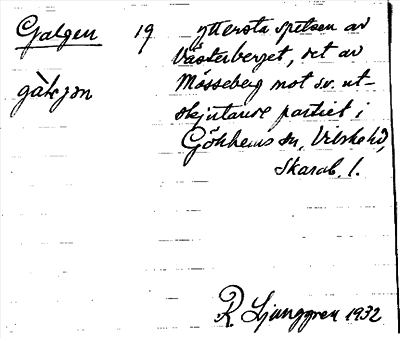 Galgen 19 yttersta spetsen av
Västerberget, det av
gàlṛjən Mösseberg mot sv. ut-
skjutande partiet i
Gökhems sn, Vilske hd,
Skarab. l.
R. Ljunggren 1932